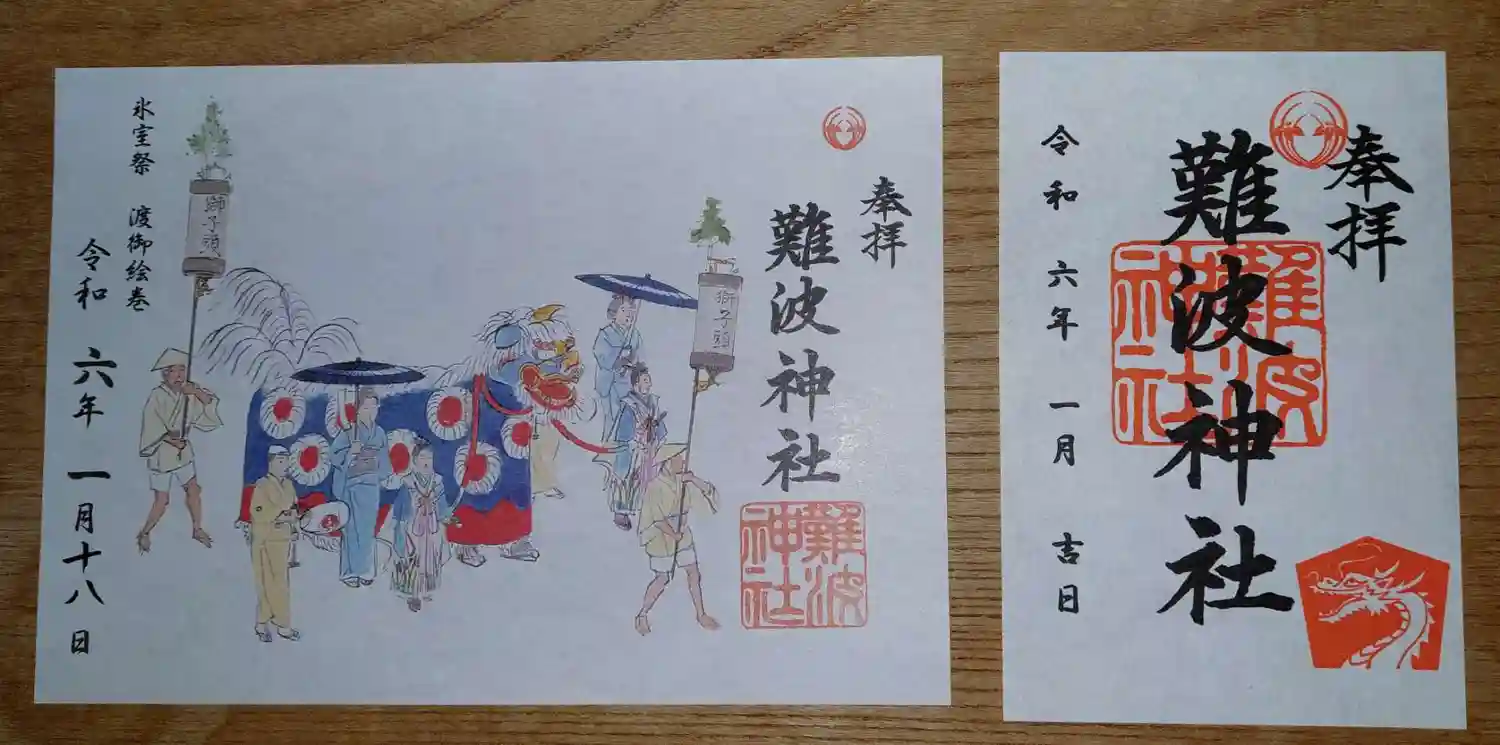 奉拝
難波神社
難波神社
獅子頭
獅子頭
氷室祭 渡御絵巻
令和 六年 一月十八日
奉拝
難波神社
難波神社
令和 六年 一月 吉日